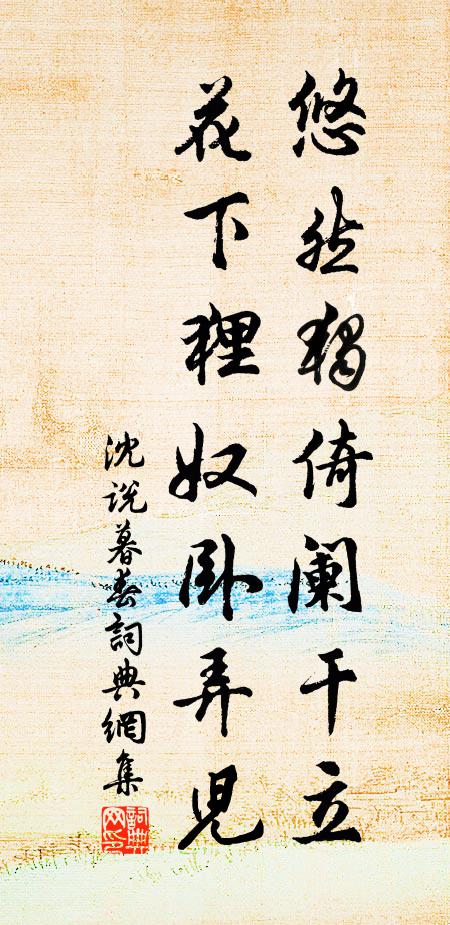 悠然獨倚阑干立
花下狸奴卧弄兒
沈说暮春詞典網集
詞典網印